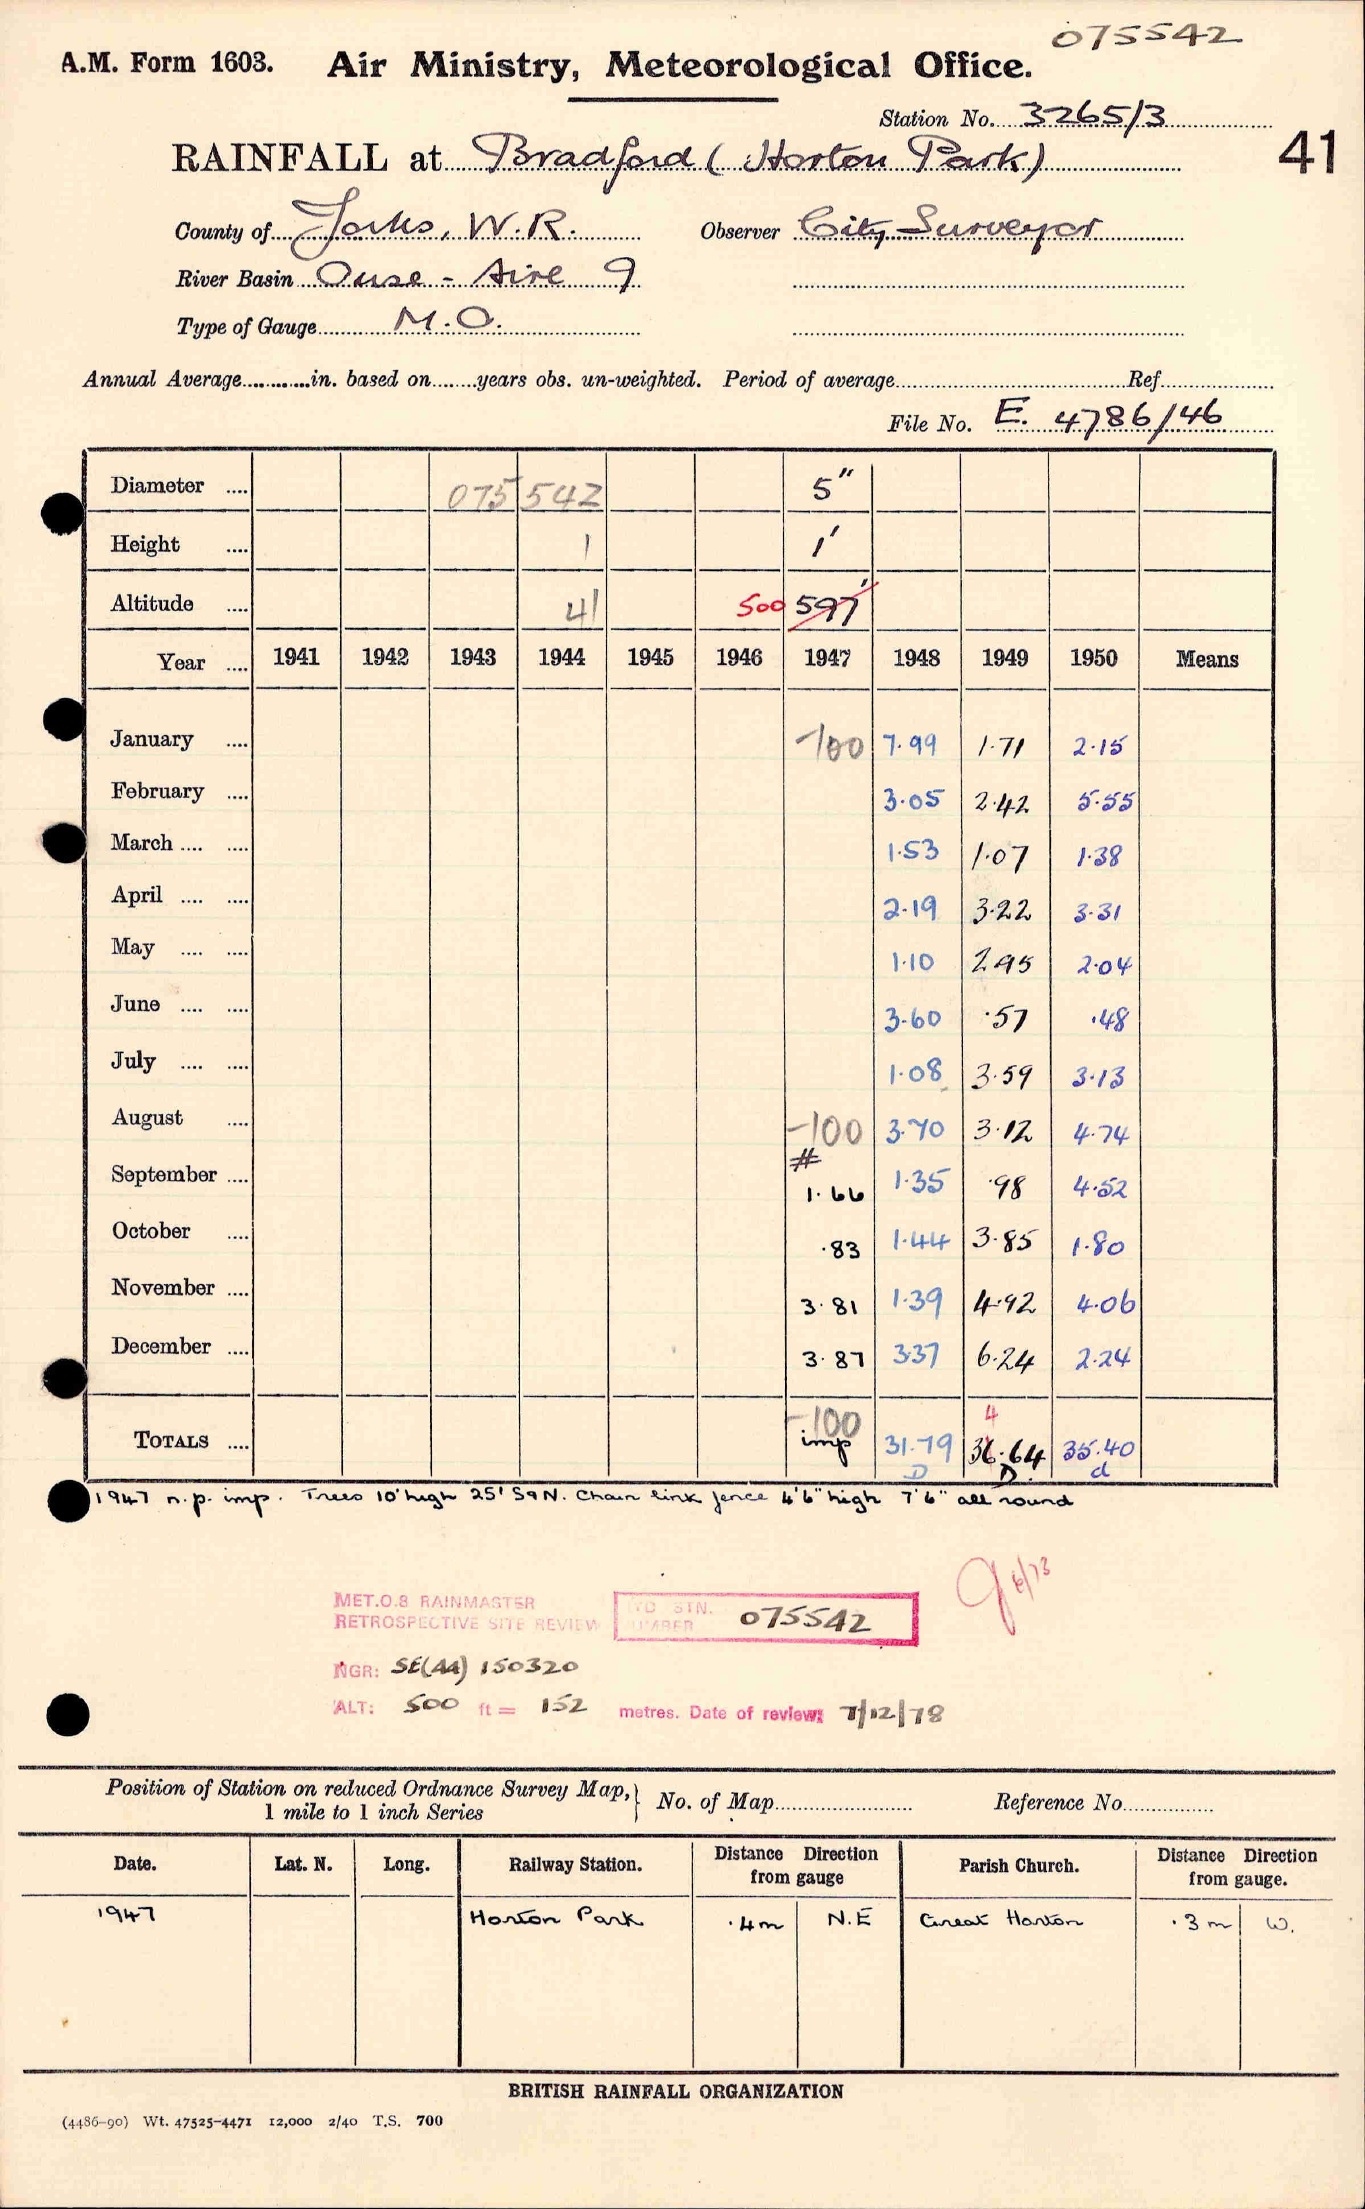 075542
A.M. Form 1603. Air Ministry, Meteorological Office.
Station No. 3265/3
41
RAINFALL at Bradford (Horton Park)
County of Yorks, W.R. Observer City Surveyor
River Basin Ouse - Aire 9
Type of Gauge M.O.
Annual Average............in. based on........years obs. un-weighted. Period of average.............Ref.............
File No. E. 4786/46
Diameter .... 075542 5"
Height .... 1 1'
Altitude .... 41 500 597'
Year .... 1941 1942 1943 1944 1945 1946 1947 1948 1949 1950 Means
January .... -100 7.99 1.71 2.15
February .... 3.05 2.42 5.55
March .... .... 1.53 1.07 1.38
April .... .... 2.19 3.22 3.31
May .... .... 1.10 2.95 2.04
June .... .... 3.60 .57 .48
July .... .... 1.08 3.59 3.13
August .... -100 3.70 3.12 4.74
September .... # 1.66 1.35 .98 4.52
October .... .83 1.44 3.85 1.80
November .... 3.81 1.39 4.92 4.06
December .... 3.87 3.37 6.24 2.24
-100 4
TOTALS .... imp 31.79 36.64 35.40
D D. d
1947 n.p. imp. Trees 10' high 25' S & N. Chain link fence 4'6" high 7'6" all round
6/73
MET.O.8 RAINMASTER
RETROSPECTIVE SITE REVIEW STN. NUMBER 075542
NGR: SE(44) 150320
ALT: 500 ft = 152 metres. Date of review: 7/12/78
Position of Station on reduced Ordnance Survey Map, } No. of Map............ Reference No............
1 mile to 1 inch Series
Date. Lat. N. Long. Railway Station. Distance from gauge Direction Parish Church. Distance from gauge. Direction
1947 Horton Park .4m N.E Great Horton .3m W.
BRITISH RAINFALL ORGANIZATION
(4486-90) Wt. 47525-4471 12,000 2/40 T.S. 700